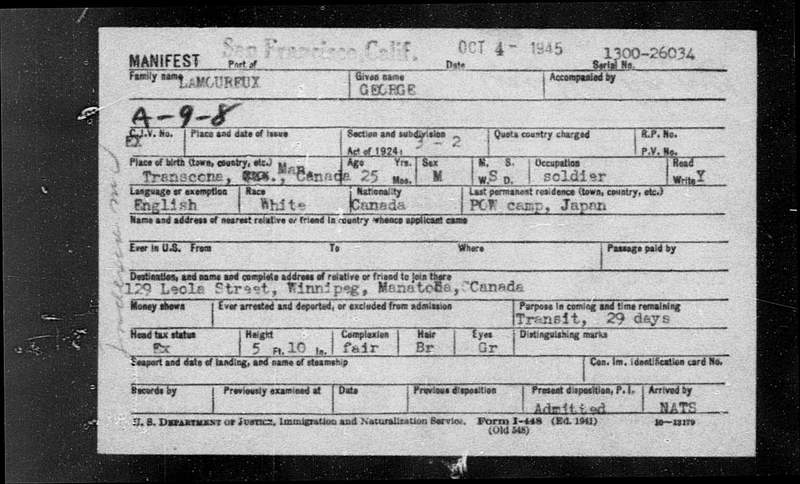 MANIFEST San Francisco, Calif. OCT 4 - 1945 1300-26034
Port of Date Serial No.
Family name LAMOUREUX Given name GEORGE Accompanied by
A-9-8
C.I.V. No. EX Place and date of issue Section and subdivision Act of 1924: 3 - 2 Quota country charged R.P. No.
P.V. No.
Place of birth (town, country, etc.) Transcona, Man., Canada Age 25 Yrs. Mos. Sex M M. S. W. S D. Occupation soldier Read Write Y
Language or exemption English Race White Nationality Canada Last permanent residence (town, country, etc.) POW camp, Japan
Name and address of nearest relative or friend in country whence applicant came
Ever in U.S. From To Where Passage paid by
Destination, and name and complete address of relative or friend to join there
129 Leola Street, Winnipeg, Manatoba, Canada
Money shown Ever arrested and deported, or excluded from admission Purpose in coming and time remaining
Transit, 29 days
Head tax status Ex Height 5 Ft. 10 In. Complexion fair Hair Br Eyes Gr Distinguishing marks
Seaport and date of landing, and name of steamship Can. Im. identification card No.
Records by Previously examined at Date Previous disposition Present disposition, P.I. Admitted Arrived by NATS
U. S. DEPARTMENT OF JUSTICE, Immigration and Naturalization Service. Form I-448 (Ed. 1941) 10—13179
(Old 548)